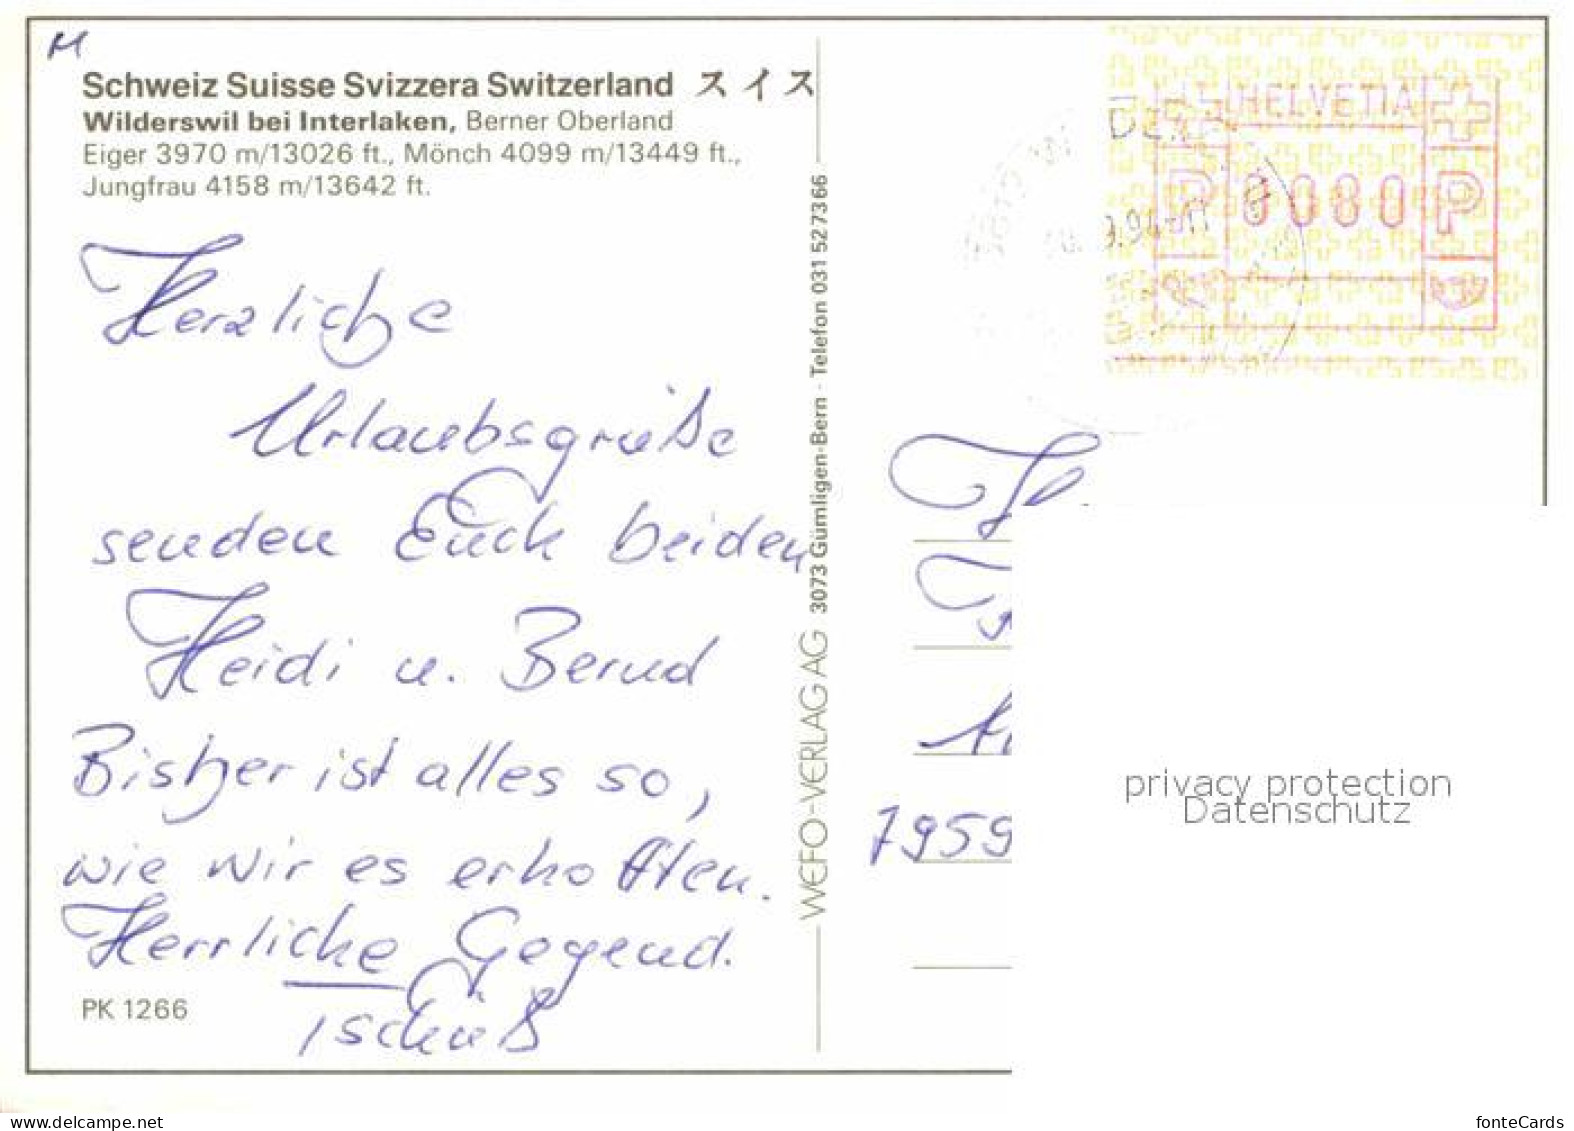 M
Schweiz Suisse Svizzera Switzerland スイス
Wilderswil bei Interlaken, Berner Oberland
Eiger 3970 m/13026 ft., Mönch 4099 m/13449 ft.,
Jungfrau 4158 m/13642 ft.
Herzliche
Urlaubsgrüße
senden Euch beiden
Heidi u. Bernd
Bisher ist alles so,
wie wir es erhofften.
Herrliche Gegend.
Tschüß
PK 1266
WEFO-VERLAG AG 3073 Gümligen-Bern · Telefon 031 527366
HELVETIA
P 0080 P
9.94-11
7959
privacy protection
Datenschutz
www.delcampe.net
fonteCards